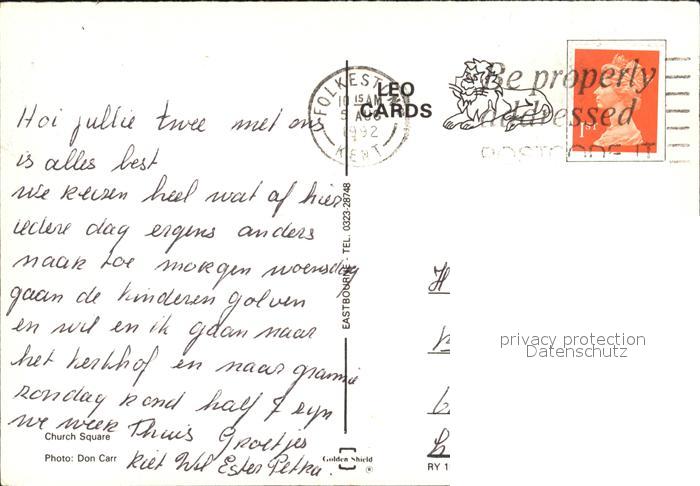 Hoi jullie twee met ons
is alles best
we reizen heel wat af hier
iedere dag ergens anders
naar toe morgen woensdag
gaan de kinderen golven
en wil en ik gaan naar
het kerkhof en naar grannie
zondag rond half 7 zijn
we weer Thuis Groetjes
Riet Wil Ester Petra.
Church Square
Photo: Don Carr
Golden Shield
EASTBOURNE - TEL. 0323-28748
LEO
CARDS
FOLKESTONE
10 15 AM
5 AUG
1992
KENT
Be properly
addressed
POSTCODE IT
1ST
privacy protection
Datenschutz
RY 1